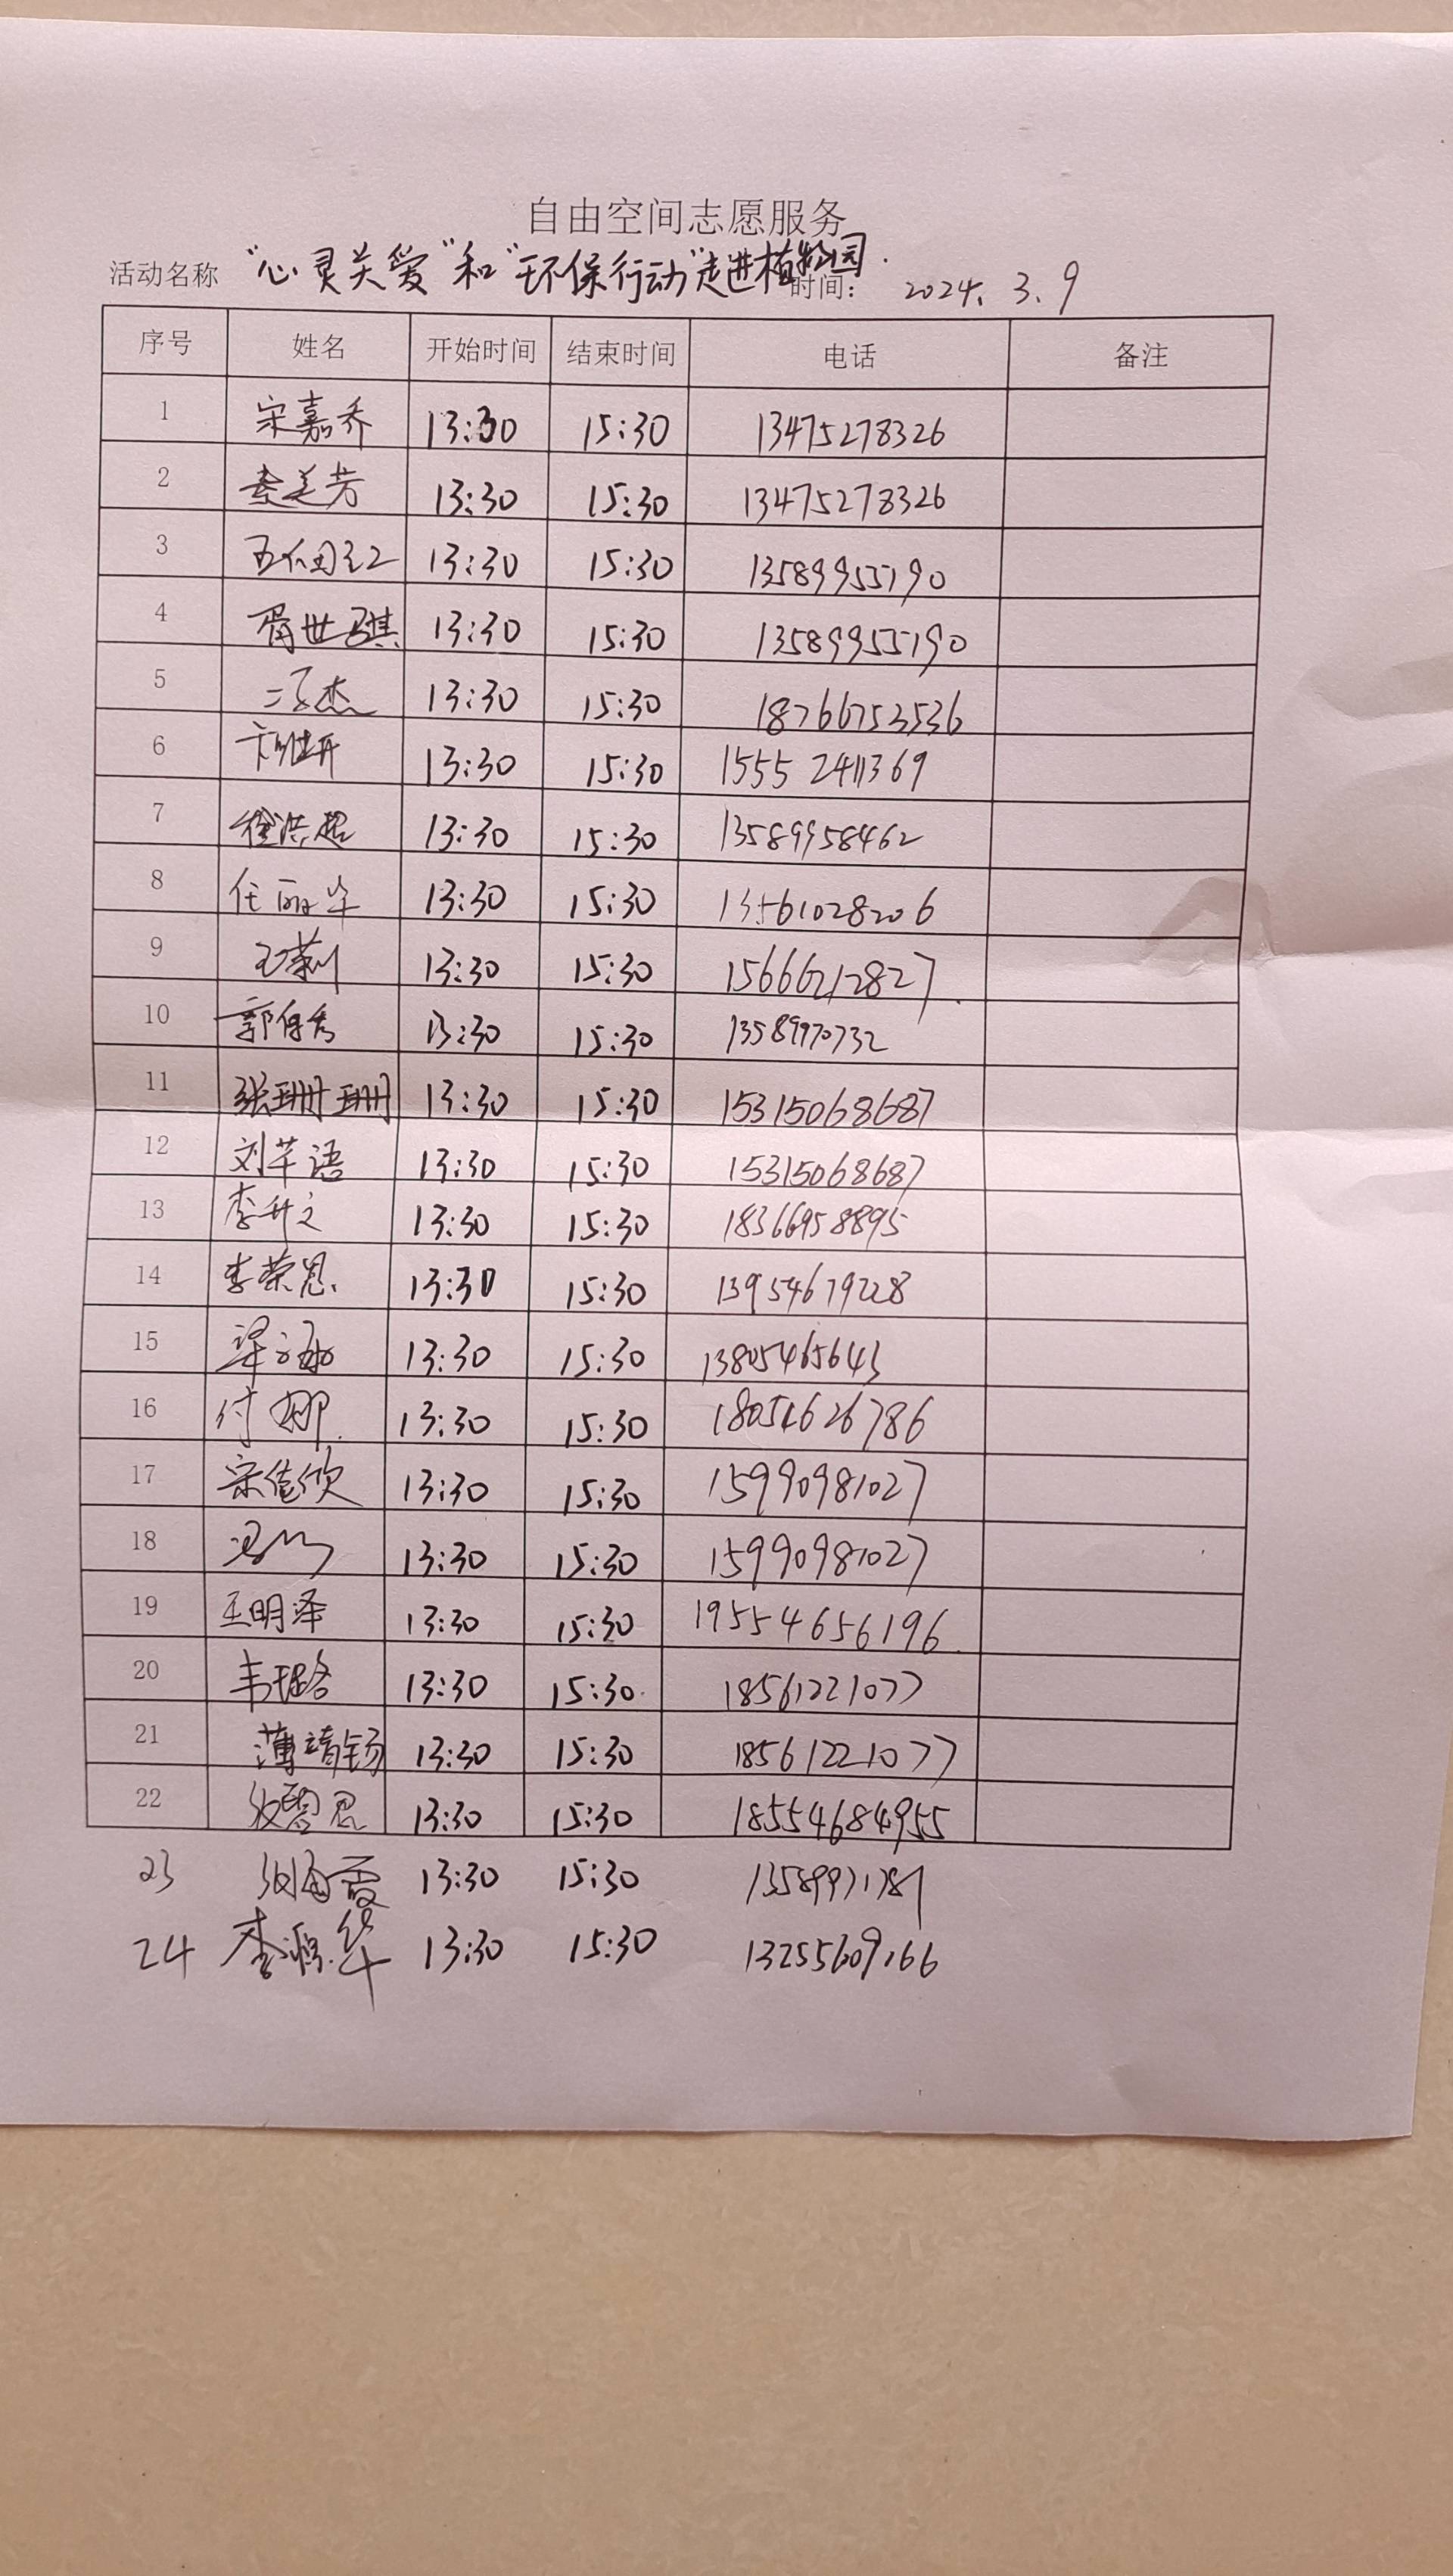 自由空间志愿服务
活动名称 “心灵关爱”和“环保行动”走进植物园. 时间: 2024. 3. 9
序号 姓名 开始时间 结束时间 电话 备注
1 宋嘉乔 13:30 15:30 13475278326
2 秦美芳 13:30 15:30 13475278326
3 13:30 15:30 13589955190
4 胥世骐 13:30 15:30 13589955190
5 13:30 15:30 18766753536
6 13:30 15:30 15552411369
7 徐洪超 13:30 15:30 13589958462
8 任丽华 13:30 15:30 13561028206
9 王莉 13:30 15:30 15666212827
10 郭保秀 13:30 15:30 13589970732
11 张珊珊 13:30 15:30 15315068687
12 刘芊语 13:30 15:30 15315068687
13 李升文 13:30 15:30 18366958895
14 李荣恩 13:30 15:30 13954679228
15 梁 13:30 15:30 13805465643
16 付娜 13:30 15:30 18054626786
17 宋佳欣 13:30 15:30 15990981027
18 13:30 15:30 15990981027
19 王明泽 13:30 15:30 19554656196
20 韦璐 13:30 15:30 18561221077
21 薄靖钖 13:30 15:30 18561221077
22 13:30 15:30 18554684955
23 海霞 13:30 15:30 13589971781
24 李 华 13:30 15:30 13255609166